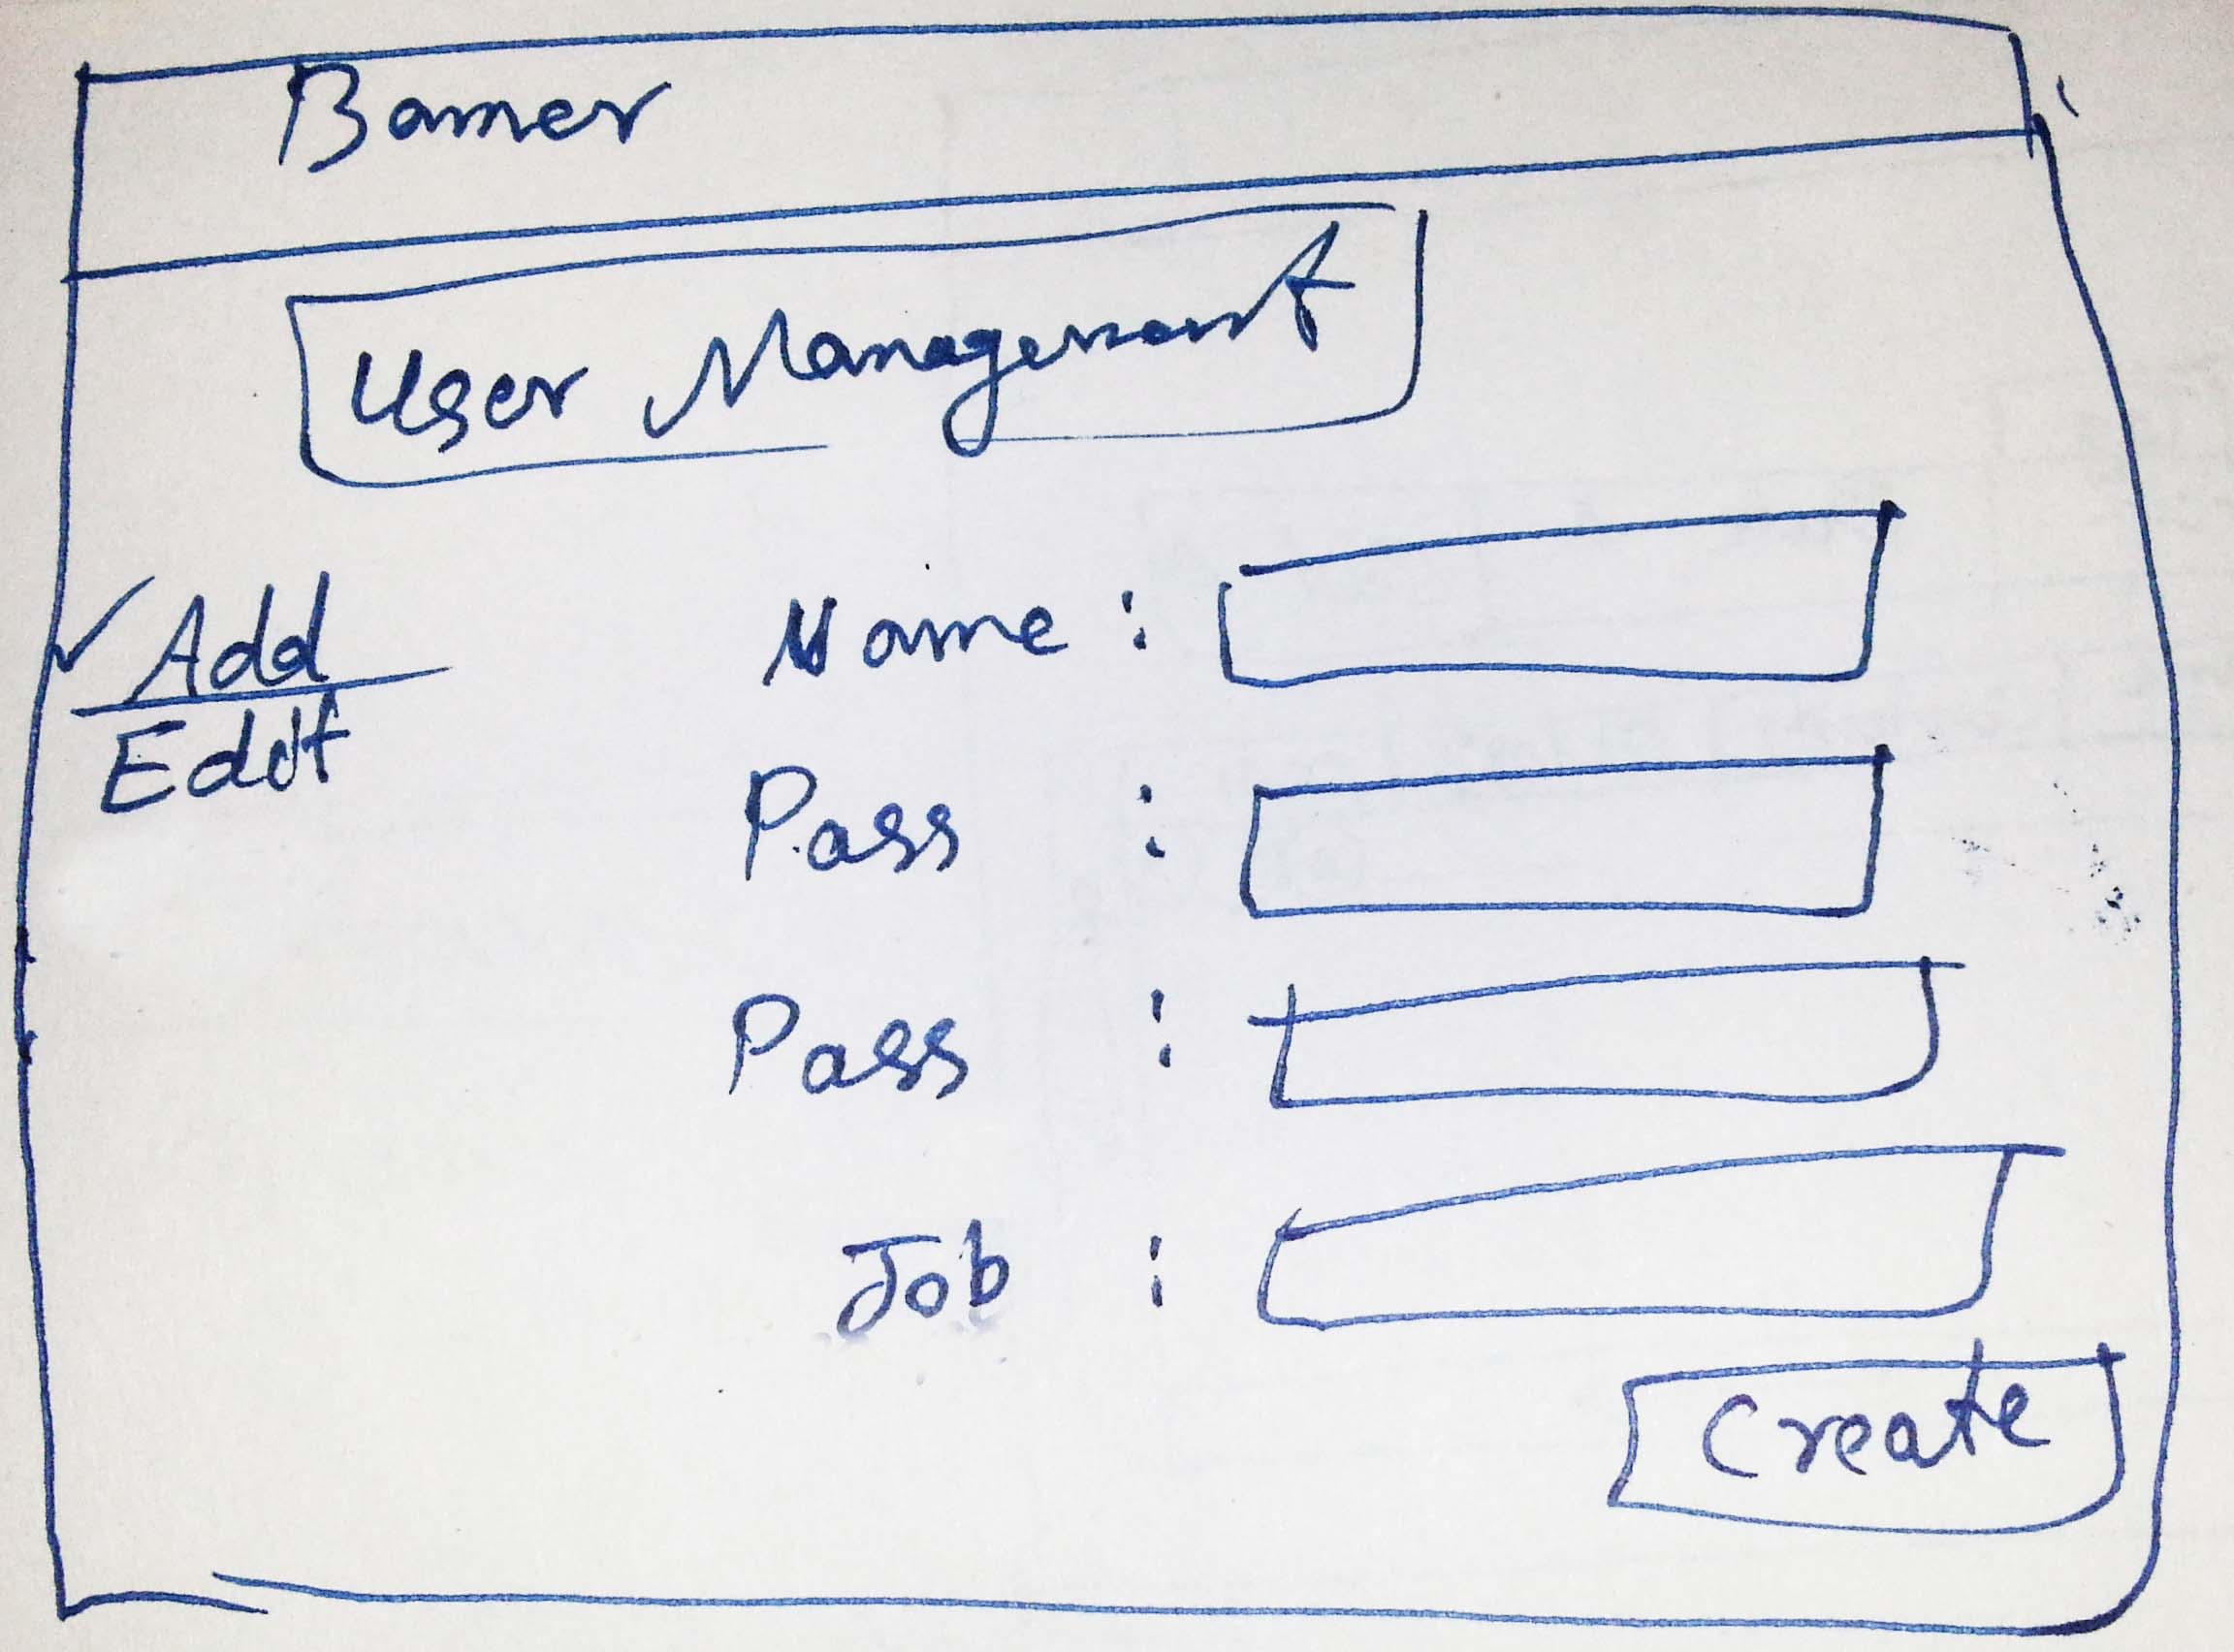 Banner
User Management
✓ Add
Edit
Name :
Pass :
Pass :
Job :
Create